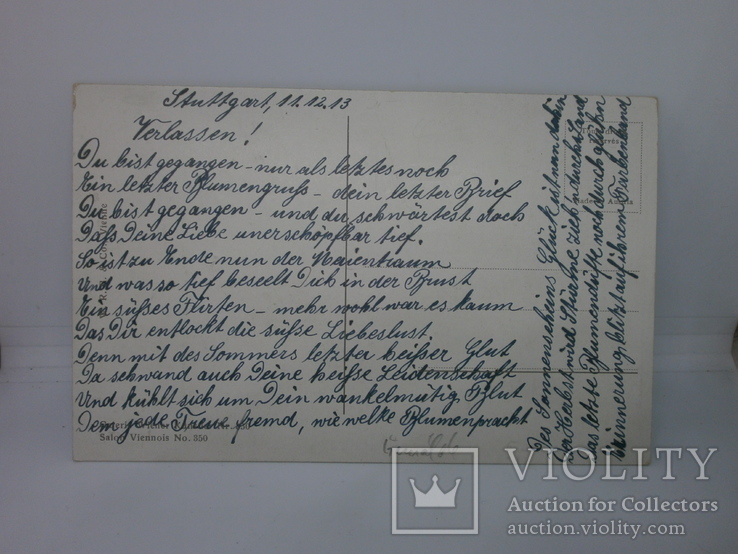 Stuttgart, 11.12.13
Verlassen!
Du bist gegangen - nur als letztes noch
Ein letzter Blumengruss - dein letzter Brief
Du bist gegangen - und du schwörtest doch
Daß Deine Liebe unerschöpfbar tief.
So ist zu Ende nun der Maientraum
Und was so tief beseelt Dich in der Brust
Ein süßes Flirten - mehr wohl war es kaum
Das Dir entlockt die süße Liebeslust.
Denn mit des Sommers letzter heißer Glut
Da schwand auch Deine heiße Leidenschaft
Und kühlt sich um Dein wankelmütig Blut
Dem jede Treue fremd, wie welke Blumenpracht
Des Sonnenscheins Glück ist nun dahin
Der Herbstwind Stürme zieh'n durchs Land
Das letzte Blumendüfte noch durchglühn
Erinnerung blitzt auf ihrem Farbenband
Salon Viennois No. 350
VIOLITY
Auction for Collectors
auction.violity.com